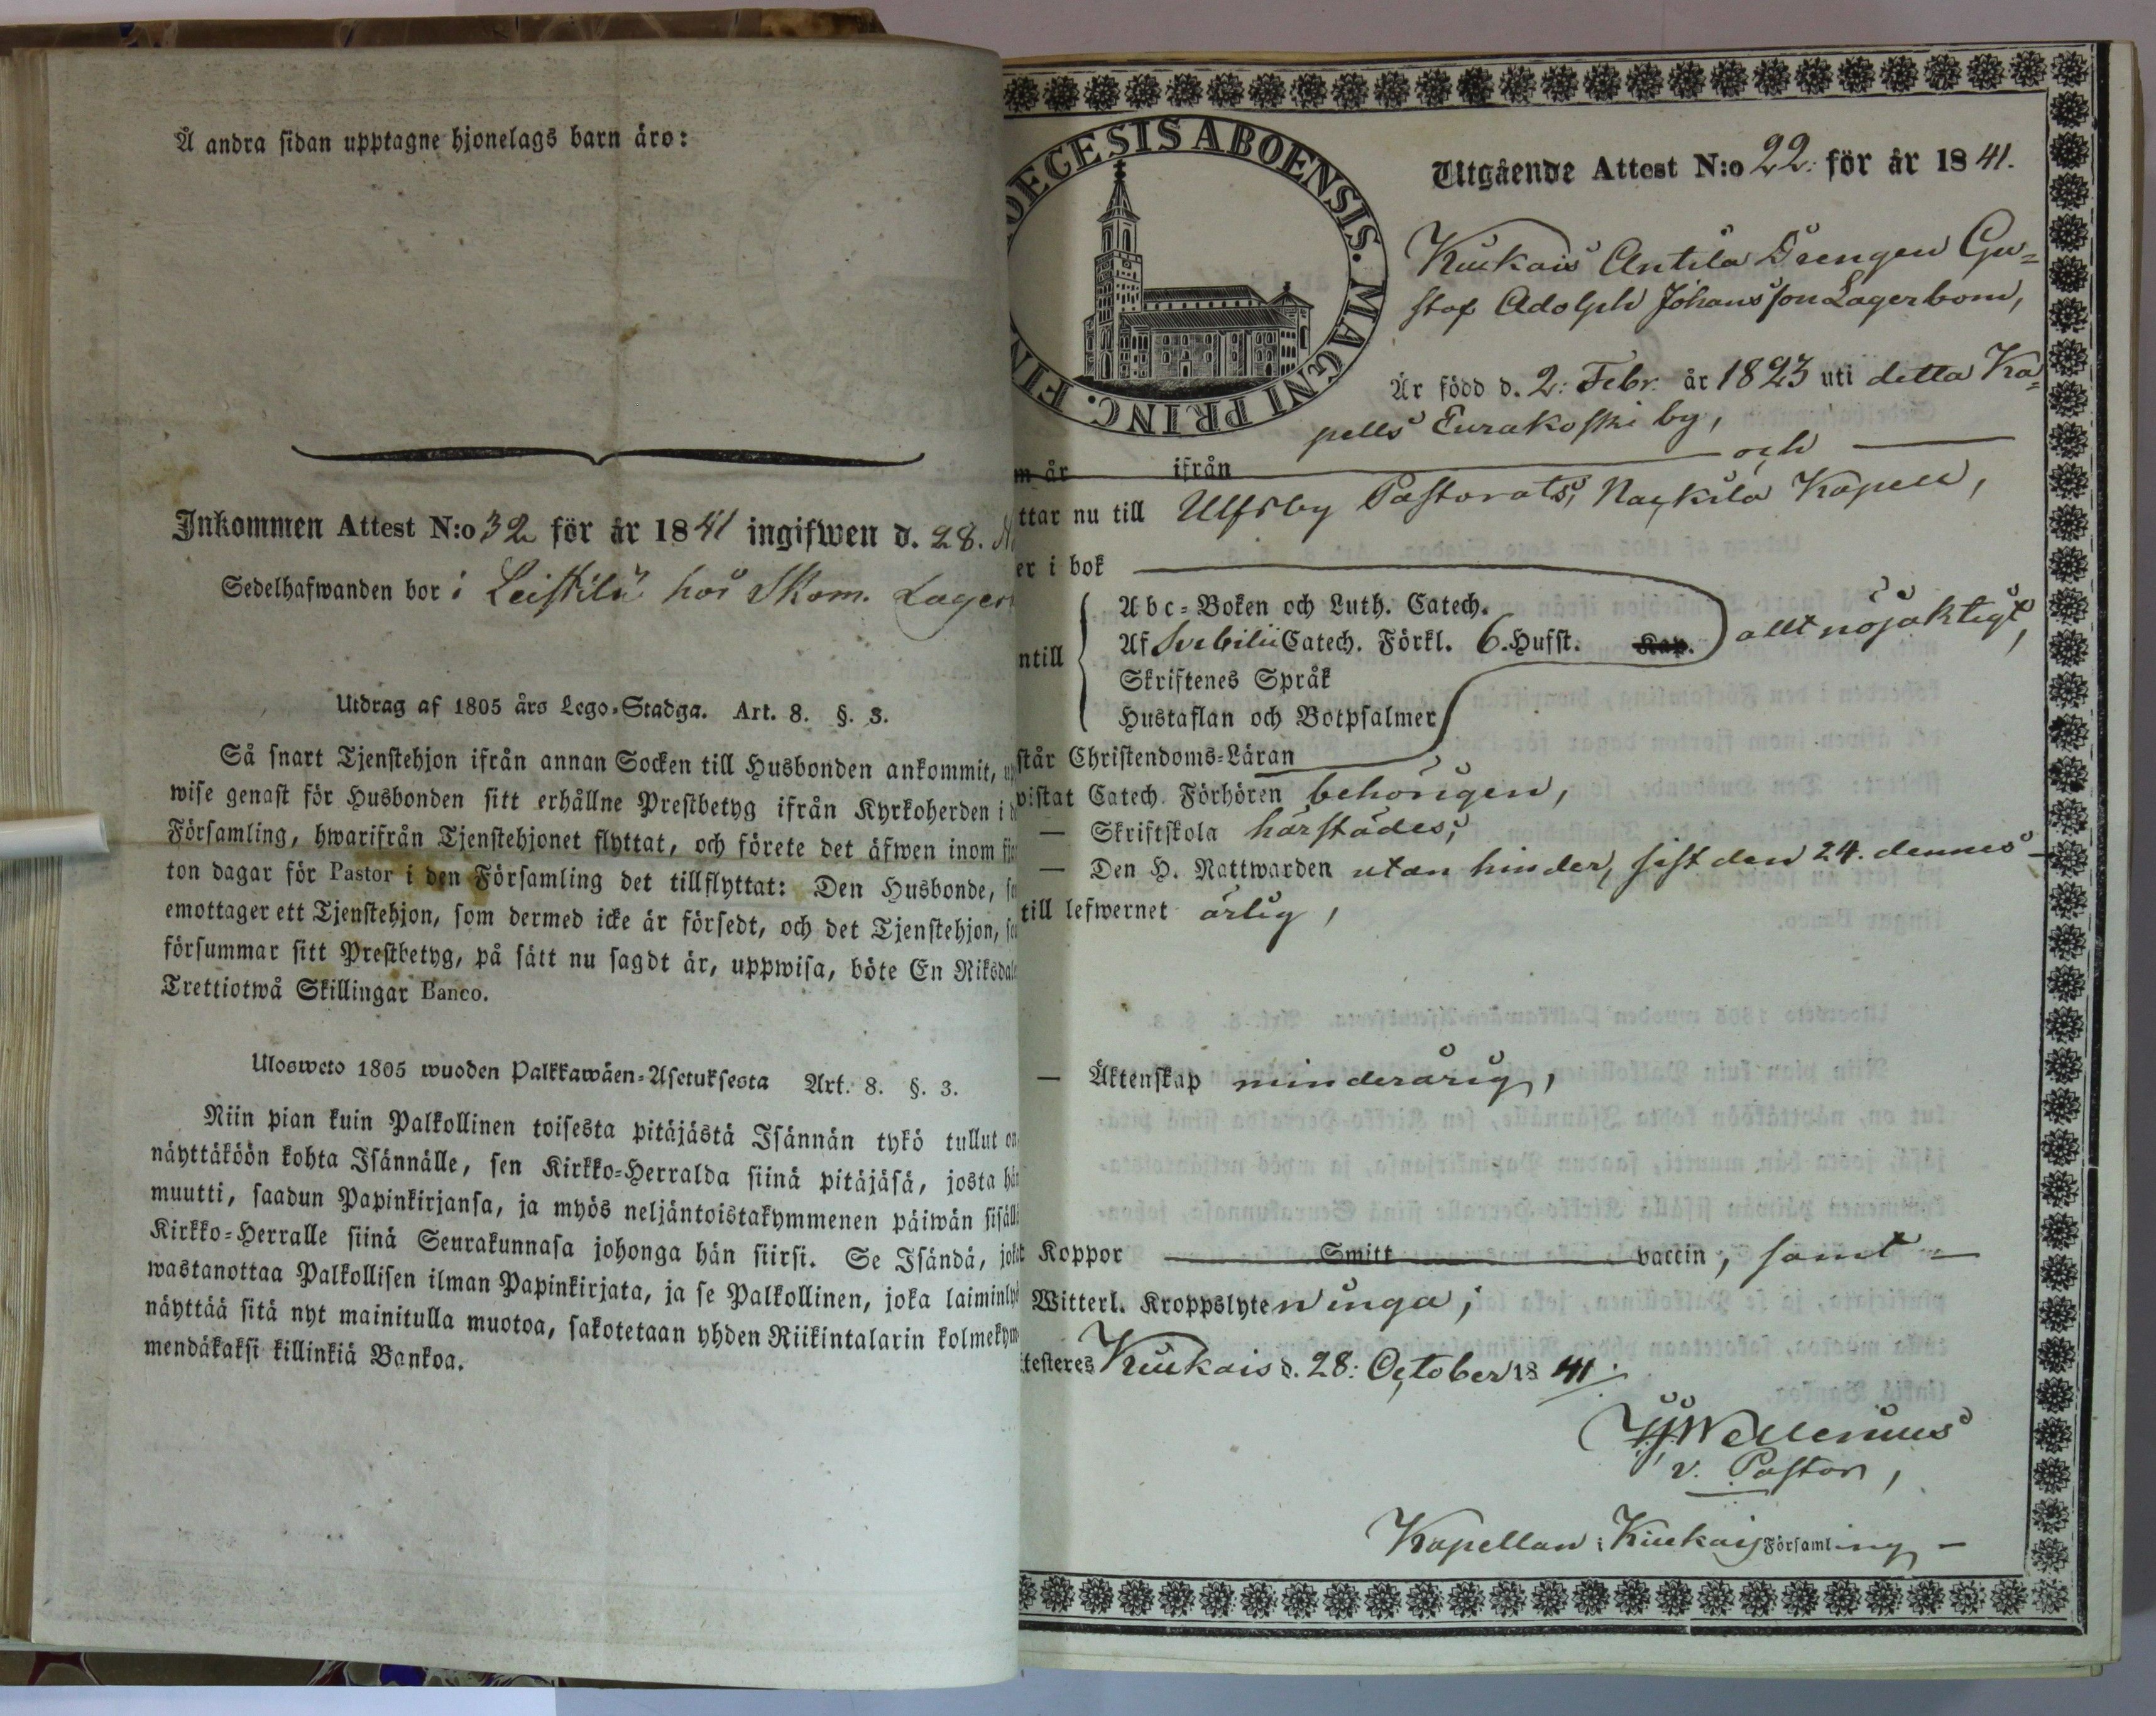 Å andra sidan upptagne hjonelags barn äro:
Inkommen Attest N:o 32 för år 1841 ingifwen d. 28.
Sedelhafwanden bor i Leistilä hos Skom. Lager
Utdrag af 1805 års Lego-Stadga. Art. 8. §. 3.
Så snart Tjenstehjon ifrån annan Socken till Husbonden ankommit,
wise genast för Husbonden sitt erhållne Prestbetyg ifrån Kyrkoherden i
Församling, hwarifrån Tjenstehjonet flyttat, och förete det äfwen inom
ton dagar för Pastor i den Församling det tillflyttat: Den Husbonde,
emottager ett Tjenstehjon, som dermed icke är försedt, och det Tjenstehjon,
försummar sitt Prestbetyg, på sätt nu sagdt är, uppwisa, böte En Riksdal
Trettiotwå Skillingar Banco.
Ulosweto 1805 wuoden Palkkawäen-Asetuksesta Art. 8. §. 3.
Niin pian kuin Palkollinen toisesta pitäjästä Isännän tykö tullut on
näyttäköön kohta Isännälle, sen Kirkko-Herralda siinä pitäjäsä, josta hän
muutti, saadun Papinkirjansa, ja myös neljäntoistakymmenen päiwän sisäll
Kirkko-Herralle siinä Seurakunnasa johonga hän siirsi. Se Isändä, jok
wastanottaa Palkollisen ilman Papinkirjata, ja se Palkollinen, joka laiminly
näyttää sitä nyt mainitulla muotoa, sakotetaan yhden Riikintalarin kolmekym
mendäkaksi killinkiä Bankoa.
OECESIS ABOENSIS. MAGNI PRINC. FIN
Utgående Attest N:o 22. för år 1841.
Kiukais Antila Drengen Gu=
staf Adolph Johansson Lagerbom,
Är född d. 2. Febr. år 1823 uti detta Ka=
pells Eurakoski by,
m år ifrån och
ttar nu till Ulfsby Pastorats, Nackila Kapell,
er i bok
Abc-Boken och Luth. Catech.
ntill Af Svebilii Catech. Förkl. 6. Hufst. Kap. allt nöjaktigt,
Skriftenes Språk
Hustaflan och Botpsalmer
står Christendoms-Läran
vistat Catech. Förhören behörigen,
— Skriftskola härstädes,
— Den H. Nattwarden utan hinder, sist den 24. dennes —
till lefwernet ärlig,
— Äktenskap minderårig,
t Koppor Smitt vaccin, samt —
Witterl. Kroppslyten inga;
ttesteres Kiukais d. 28. October 1841.
Wellenius
v. Pastor,
Kapellan i Kiukais Församling —